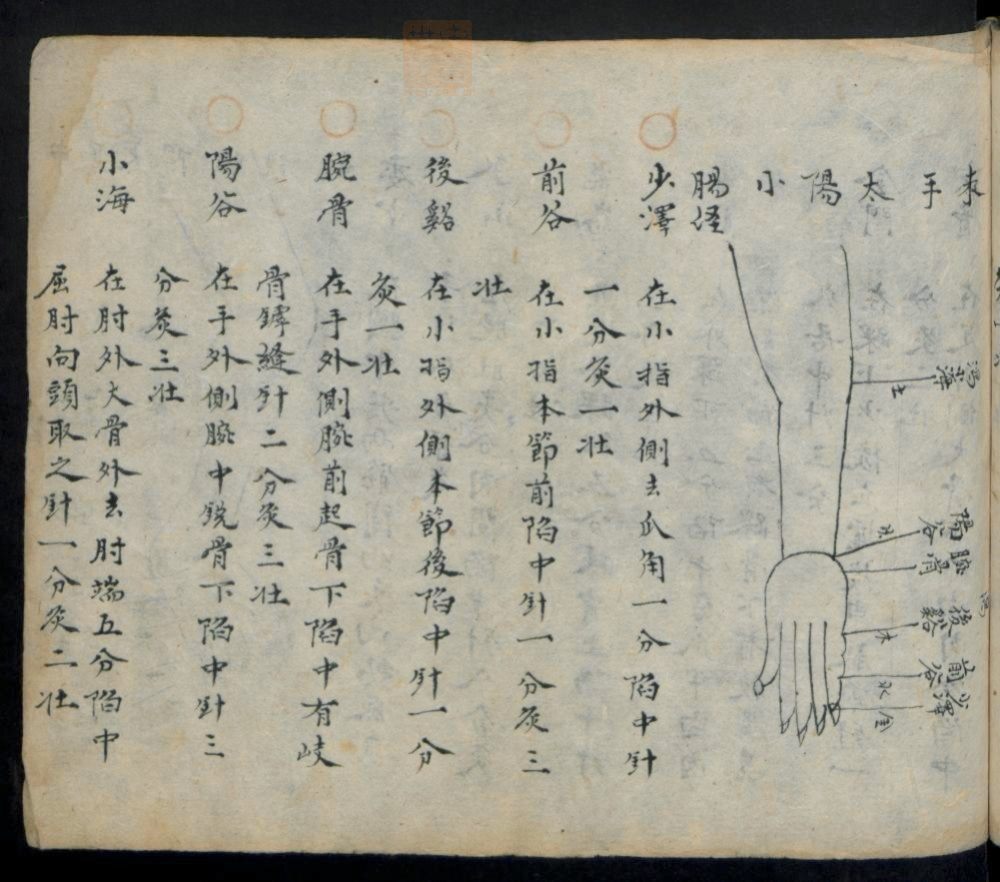 手太陽小
腸経
小海
瀉
土
陽谷
火
腕骨
後谿
木
前谷
水
少澤
金
少澤 在小指外側去爪角一分陷中針
一分灸一壮
前谷 在小指本節前陷中針一分灸三
壮
後谿 在小指外側本節後陷中針一分
灸一壮
腕骨 在手外側腕前起骨下陷中有岐
骨罅縫針二分灸三壮
陽谷 在手外側腕中銳骨下陷中針三
分灸三壮
小海 在肘外大骨外去肘端五分陷中
屈肘向頭取之針一分灸二壮